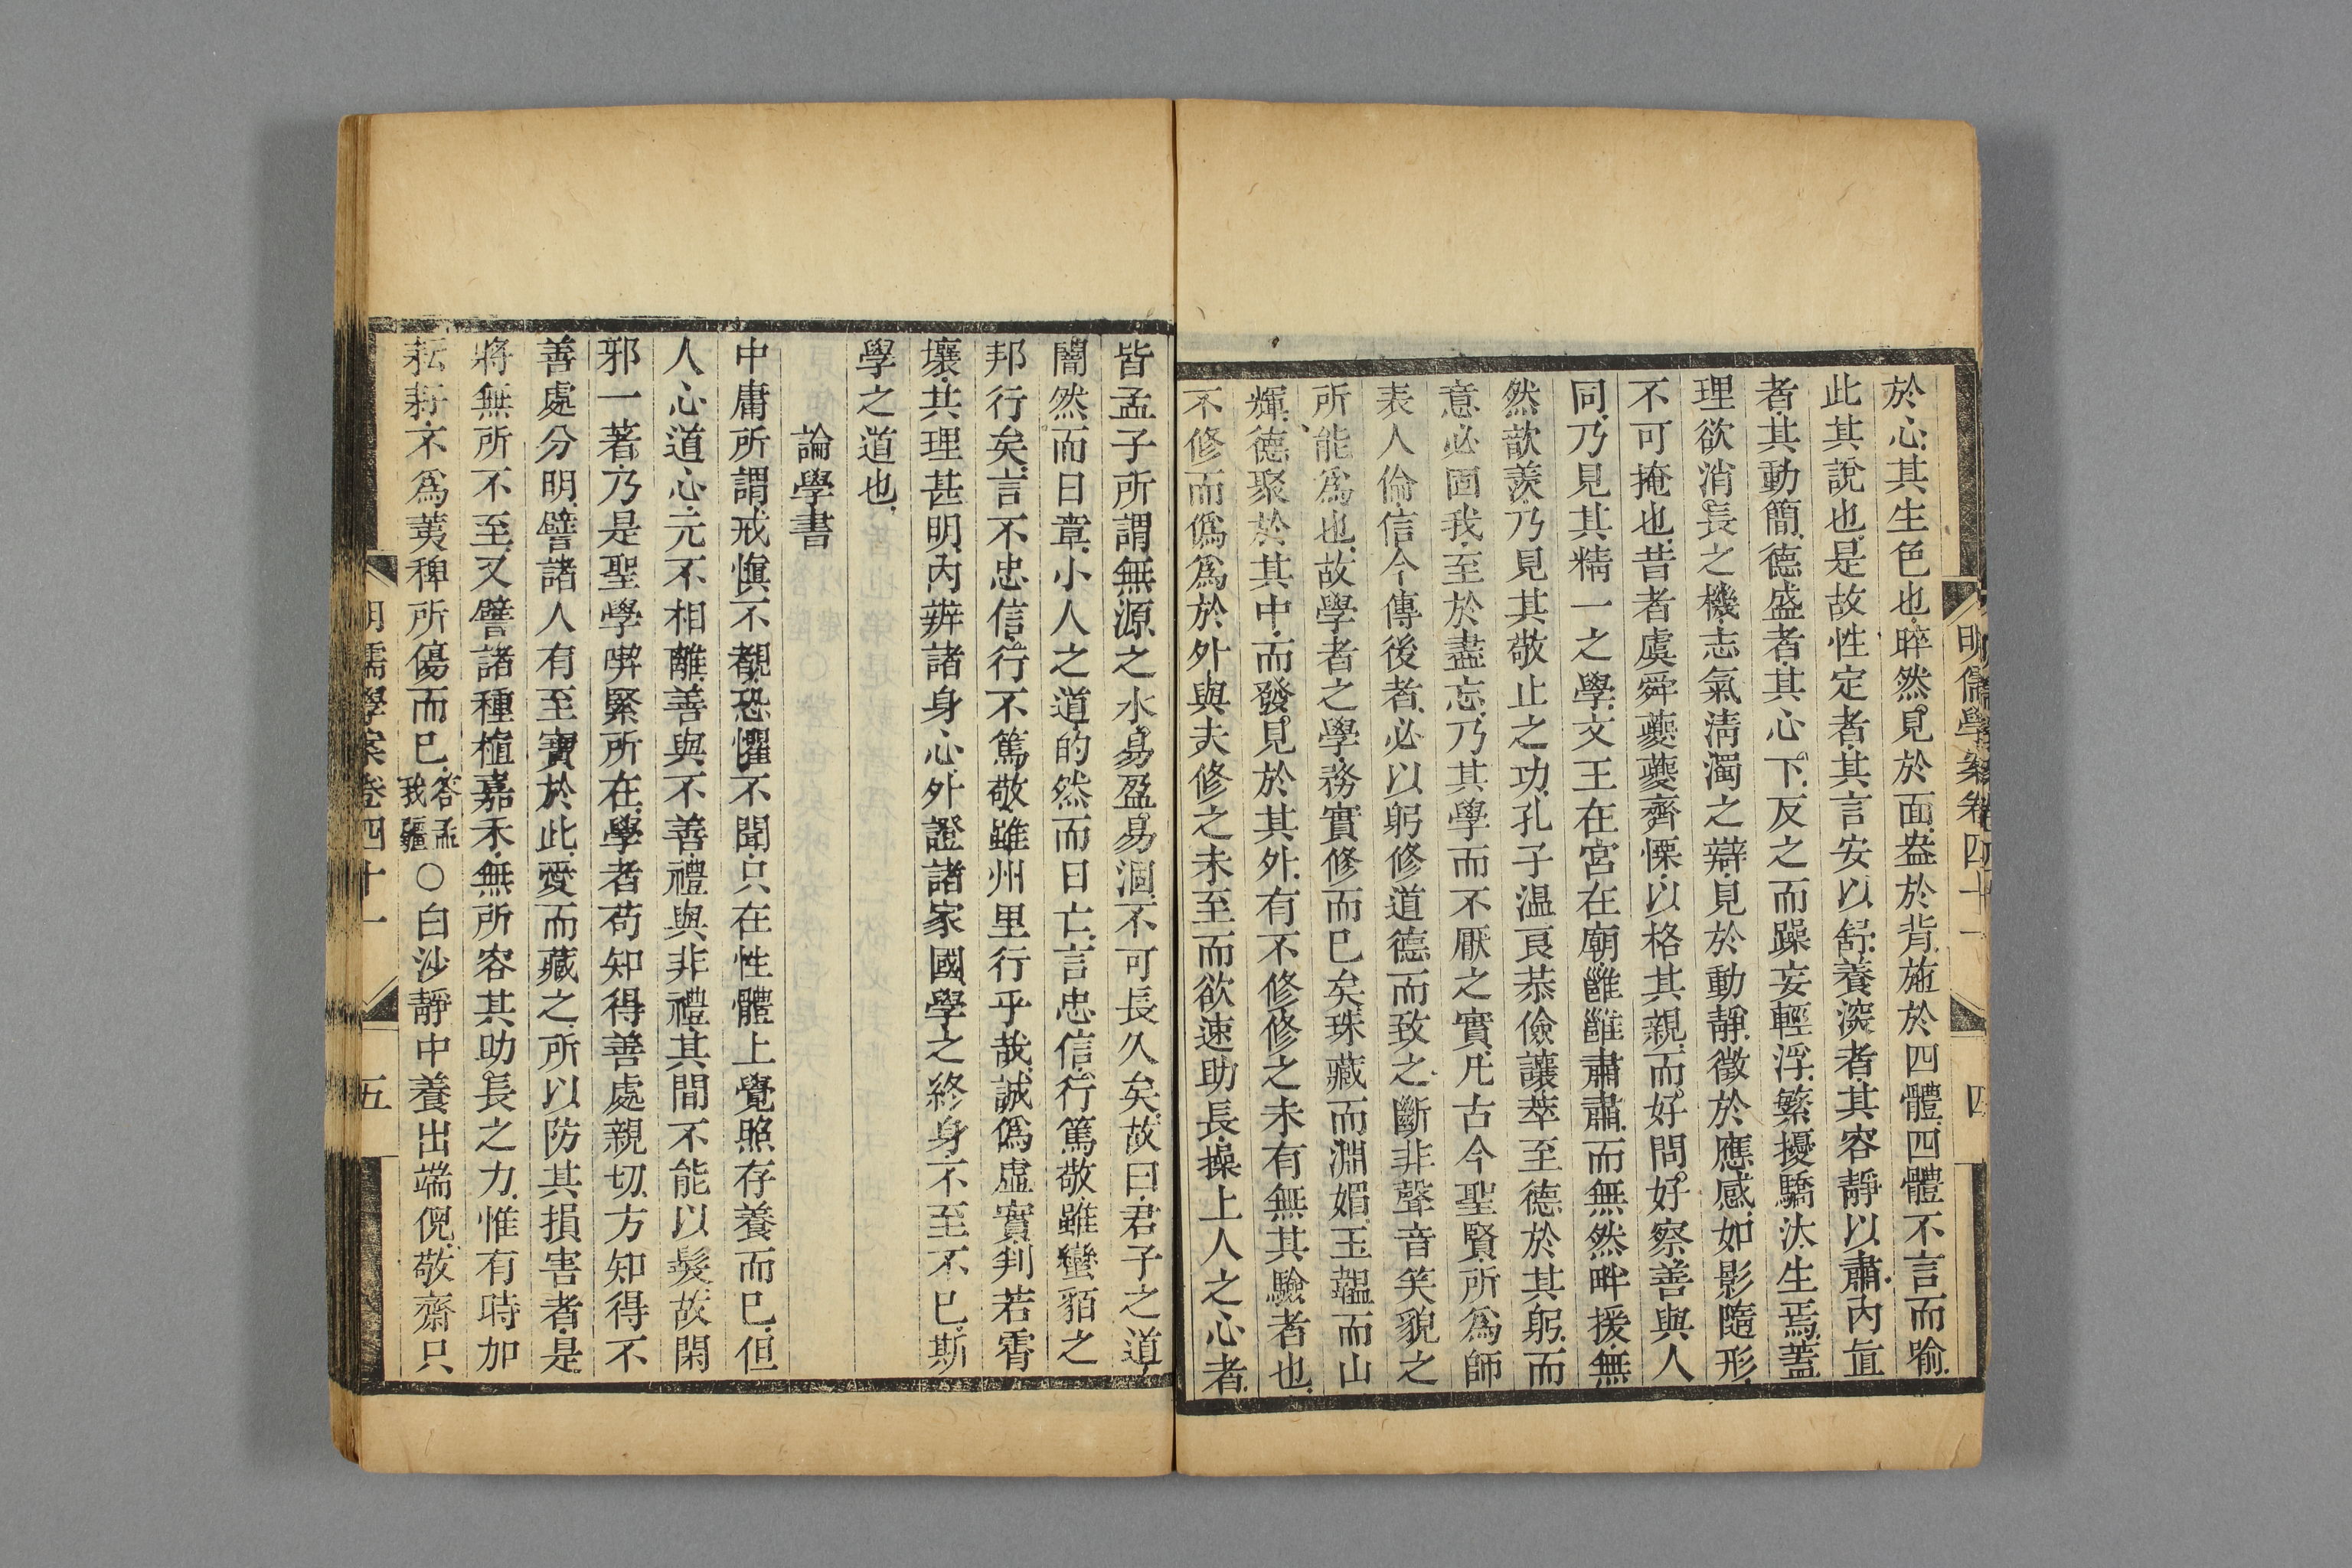 明儒學案卷四十一 四
於心其生色也睟然見於面盎於背施於四體四體不言而喻
此其說也是故性定者其言安以舒養深者其容靜以肅內直
者其動簡德盛者其心下反之而躁妄輕浮繁擾驕汰生焉蓋
理欲消長之機志氣清濁之辯見於動靜徵於應感如影隨形
不可掩也昔者虞舜夔夔齊慄以格其親而好問好察善與人
同乃見其精一之學文王在宮在廟雝雝肅肅而無然畔援無
然歆羨乃見其敬止之功孔子溫良恭儉讓萃至德於其躬而
意必固我至於盡忘乃其學而不厭之實凡古今聖賢所爲師
表人倫信今傳後者必以躬修道德而致之斷非聲音笑貌之
所能爲也故學者之學務實修而已矣珠藏而淵媚玉韞而山
輝德聚於其中而發見於其外有不修修之未有無其驗者也
不修而僞爲於外與夫修之未至而欲速助長操上人之心者
皆孟子所謂無源之水易盈易涸不可長久矣故曰君子之道
闇然而日章小人之道的然而日亡言忠信行篤敬雖蠻貊之
邦行矣言不忠信行不篤敬雖州里行乎哉誠僞虛實判若霄
壤共理甚明內辨諸身心外證諸家國學之終身不至不已斯
學之道也
論學書
中庸所謂戒愼不覩恐懼不聞只在性體上覺照存養而已但
人心道心元不相離善與不善禮與非禮其間不能以髮故閑
邪一著乃是聖學喫緊所在學者苟知得善處親切方知得不
善處分明譬諸人有至寶於此愛而藏之所以防其損害者是
將無所不至又譬諸種植嘉禾無所容其助長之力惟有時加
耘耔不爲荑稗所傷而已答孟我疆○白沙靜中養出端倪敬齋只
明儒學案卷四十一 五